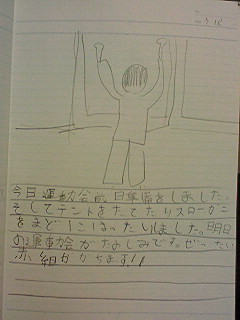 今日運動会の、日準備をしました。
そしてテントをたてたりスローガン
をまどにはったりしました。明日
の運動会がたのしみです。ぜったい
赤組がかちます!!